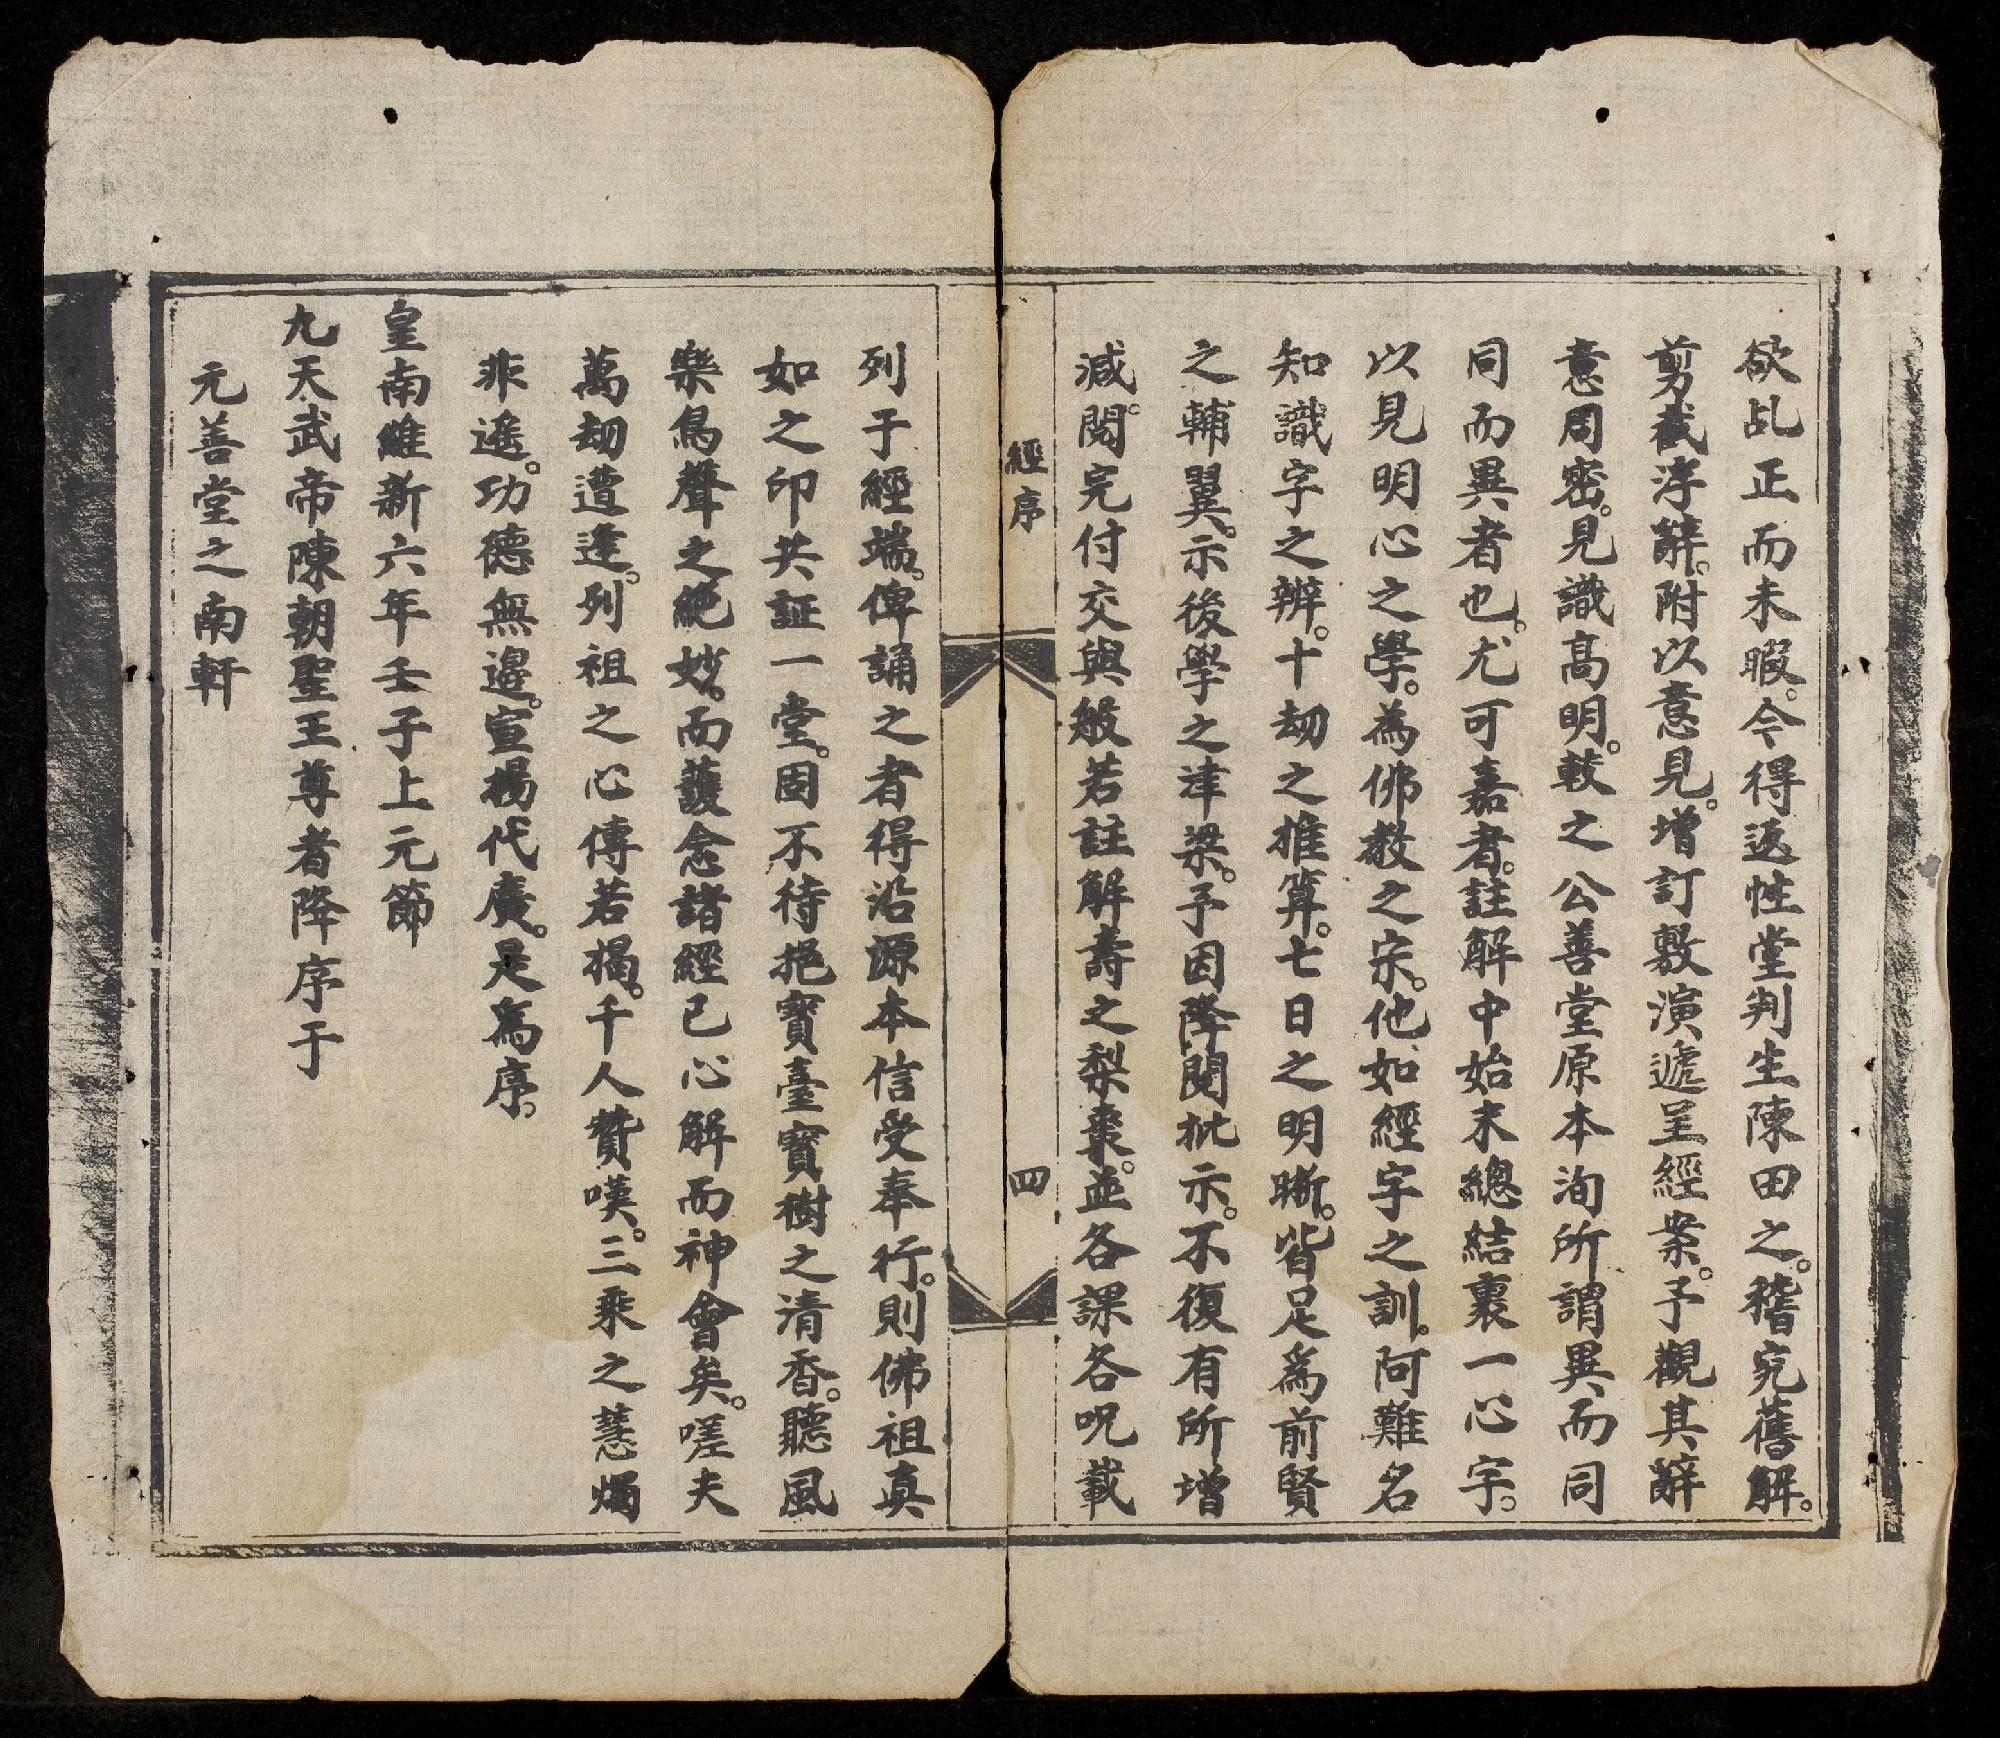 欲乩正而未暇。今得返性堂判生陳田之。稽究舊解。
剪截浮辭。附以意見。增訂敷演遞呈經案。予觀其辭
意周密。見識高明。較之公善堂原本洵所謂異而同
同而異者也。尤可嘉者。註解中始末總結裹一心字。
以見明心之學。為佛教之宗。他如經字之訓。阿難名
知識字之辨。十刼之推算。七日之明晰。皆足爲前賢
之輔翼。示後學之津梁。予因降閱批示。不復有所增
減。閱完付交與般若註解壽之梨棗。並各課各呪載
經序 四
列于經端。俾誦之者得沿源本信受奉行。則佛祖真
如之印共証一堂。固不待挹寶臺寶樹之清香。聽風
樂鳥聲之絶妙。而護念諸經已心解而神會矣。嗟夫
萬刼遭逢。列祖之心傳若揭。千人贊嘆。三乘之慧燭
非遙。功德無邊。宣揚代廣。是爲序。
皇南維新六年壬子上元節
九天武帝陳朝聖王尊者降序于
元善堂之南軒